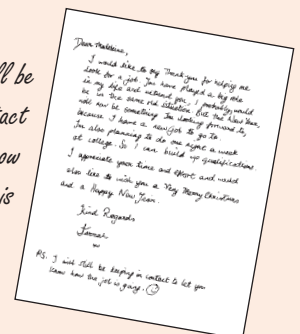 ll be
tact
ow
is
Dear Madeleine,
I would like to say Thank you for helping me
look for a job. You have played a big role
in my life and without you, I probably would
be in the same old situation. But this New Year,
will now be something I'm looking forward to,
because I have a new job to go to.
I'm also planning to do one night a week
at college. So I can build up qualifications.
I appreciate your time and effort and would
also like to wish you a Very Merry Christmas
and a Happy New Year.
Kind Regards
P.S. I will still be keeping in contact to let you
know how the job is going.